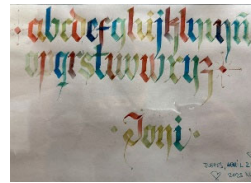 abcdefghijklmnn
opqrstuvwxyz
Joni